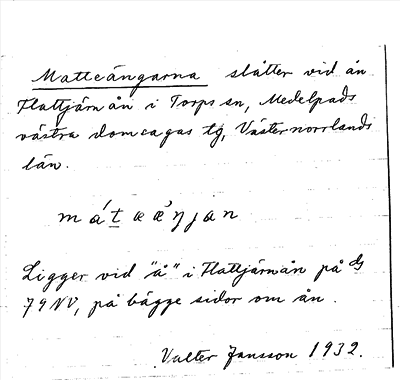 Matteängarna slåtter vid ån
Flattjärnån i Torps sn, Medelpads
västra domsagas tg, Västernorrlands
län.
Ligger vid "å" i Flattjärnån på
79NV, på bägge sidor om ån.
Valter Jansson 1932.